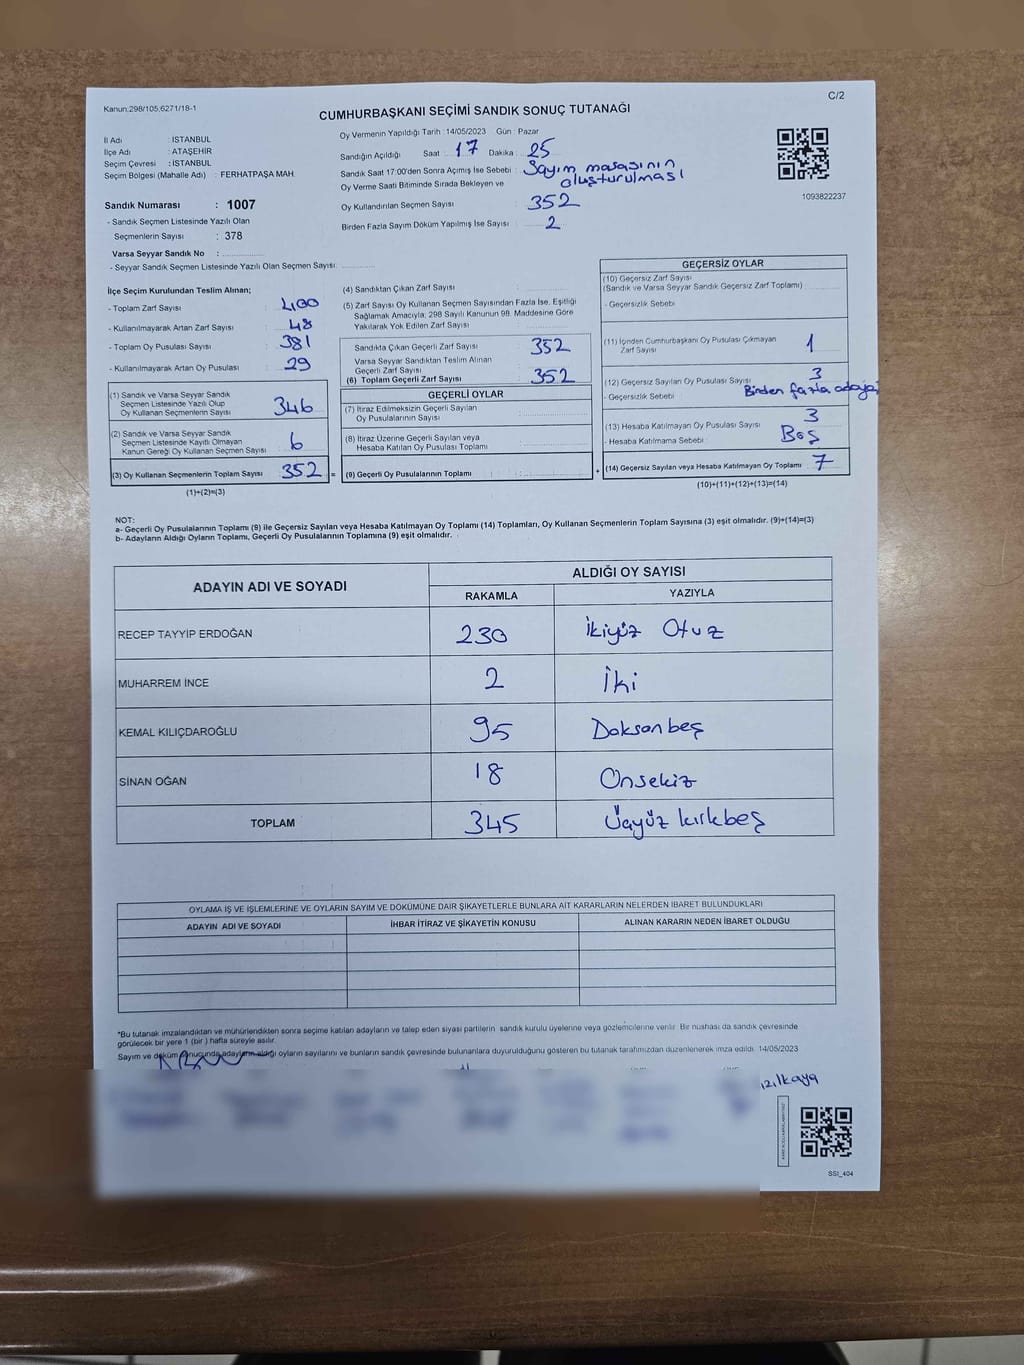 Kanun:298/105,6271/18-1
C/2
CUMHURBAŞKANI SEÇİMİ SANDIK SONUÇ TUTANAĞI
İl Adı : İSTANBUL
İlçe Adı : ATAŞEHİR
Seçim Çevresi : İSTANBUL
Seçim Bölgesi (Mahalle Adı) : FERHATPAŞA MAH.
Sandık Numarası : 1007
- Sandık Seçmen Listesinde Yazılı Olan
Seçmenlerin Sayısı : 378
Varsa Seyyar Sandık No :
- Seyyar Sandık Seçmen Listesinde Yazılı Olan Seçmen Sayısı:
Oy Vermenin Yapıldığı Tarih : 14/05/2023 Gün : Pazar
Sandığın Açıldığı Saat : 17 Dakika : 25
Sandık Saat 17:00'den Sonra Açımış İse Sebebi : Sayım masasının oluşturulması
Oy Verme Saati Bitiminde Sırada Bekleyen ve
Oy Kullandırılan Seçmen Sayısı 352
Birden Fazla Sayım Döküm Yapılmış İse Sayısı : 2
1093822237
İlçe Seçim Kurulundan Teslim Alınan;
- Toplam Zarf Sayısı : 400
- Kullanılmayarak Artan Zarf Sayısı : 48
- Toplam Oy Pusulası Sayısı : 381
- Kullanılmayarak Artan Oy Pusulası : 29
(1) Sandık ve Varsa Seyyar Sandık
Seçmen Listesinde Yazılı Olup
Oy Kullanan Seçmenlerin Sayısı : 346
(2) Sandık ve Varsa Seyyar Sandık
Seçmen Listesinde Kayıtlı Olmayan
Kanun Gereği Oy Kullanan Seçmen Sayısı : 6
(3) Oy Kullanan Seçmenlerin Toplam Sayısı : 352 =
(1)+(2)=(3)
(4) Sandıktan Çıkan Zarf Sayısı :
(5) Zarf Sayısı Oy Kullanan Seçmen Sayısından Fazla İse, Eşitliği
Sağlamak Amacıyla; 298 Sayılı Kanunun 98. Maddesine Göre
Yakılarak Yok Edilen Zarf Sayısı :
Sandıkta Çıkan Geçerli Zarf Sayısı : 352
Varsa Seyyar Sandıktan Teslim Alınan
Geçerli Zarf Sayısı :
(6) Toplam Geçerli Zarf Sayısı : 352
GEÇERLİ OYLAR
(7) İtiraz Edilmeksizin Geçerli Sayılan
Oy Pusulalarının Sayısı :
(8) İtiraz Üzerine Geçerli Sayılan veya
Hesaba Katılan Oy Pusulası Toplamı :
(9) Geçerli Oy Pusulalarının Toplamı : +
GEÇERSİZ OYLAR
(10) Geçersiz Zarf Sayısı
(Sandık ve Varsa Seyyar Sandık Geçersiz Zarf Toplamı)
- Geçersizlik Sebebi
(11) İçinden Cumhurbaşkanı Oy Pusulası Çıkmayan
Zarf Sayısı 1
(12) Geçersiz Sayılan Oy Pusulası Sayısı 3
- Geçersizlik Sebebi Birden fazla adaya
(13) Hesaba Katılmayan Oy Pusulası Sayısı : 3
- Hesaba Katılmama Sebebi : Boş
(14) Geçersiz Sayılan veya Hesaba Katılmayan Oy Toplamı : 7
(10)+(11)+(12)+(13)=(14)
NOT:
a- Geçerli Oy Pusulalarının Toplamı (9) ile Geçersiz Sayılan veya Hesaba Katılmayan Oy Toplamı (14) Toplamları, Oy Kullanan Seçmenlerin Toplam Sayısına (3) eşit olmalıdır. (9)+(14)=(3)
b- Adayların Aldığı Oyların Toplamı, Geçerli Oy Pusulalarının Toplamına (9) eşit olmalıdır.
ADAYIN ADI VE SOYADI
ALDIĞI OY SAYISI
RAKAMLA YAZIYLA
RECEP TAYYİP ERDOĞAN 230 İkiyüz Otuz
MUHARREM İNCE 2 İki
KEMAL KILIÇDAROĞLU 95 Doksanbeş
SİNAN OĞAN 18 Onsekiz
TOPLAM 345 Üçyüz kırkbeş
OYLAMA İŞ VE İŞLEMLERİNE VE OYLARIN SAYIM VE DÖKÜMÜNE DAİR ŞİKAYETLERLE BUNLARA AİT KARARLARIN NELERDEN İBARET BULUNDUKLARI
ADAYIN ADI VE SOYADI İHBAR İTİRAZ VE ŞİKAYETİN KONUSU ALINAN KARARIN NEDEN İBARET OLDUĞU
*Bu tutanak imzalandıktan ve mühürlendikten sonra seçime katılan adayların ve talep eden siyasi partilerin sandık kurulu üyelerine veya gözlemcilerine verilir. Bir nüshası da sandık çevresinde
görülecek bir yere 1 (bir) hafta süreyle asılır.
Sayım ve döküm sonucunda adayların aldığı oyların sayılarını ve bunların sandık çevresinde bulunanlara duyurulduğunu gösteren bu tutanak tarafımızdan düzenlenerek imza edildi. 14/05/2023
SSI_404